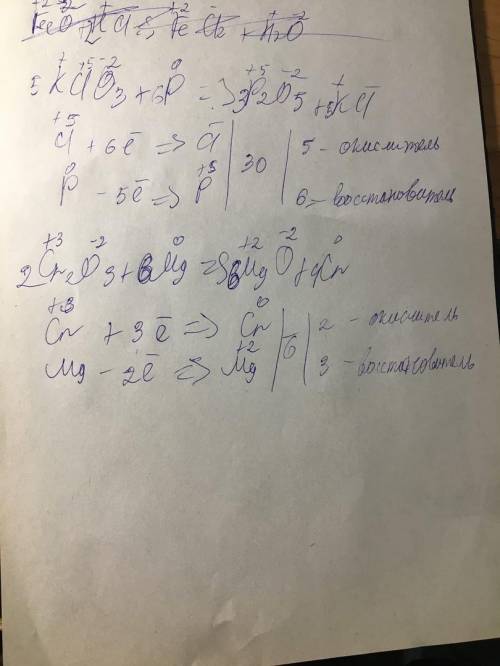 FeO + 2HCl => FeCl2 + H2O
+ +5 -2 0 +5 -2 +
5KClO3 + 6P => 3P2O5 + 5KCl
+5 -
Cl + 6e => Cl | 30 | 5 - окислитель
0 +5
P - 5e => P 6 - восстановитель
+3 -2 0 +2 -2 0
2Cr2O3 + 6Mg => 6MgO + 4Cr
+3 0
Cr + 3e => Cr | 6 | 2 - окислитель
+2
Mg - 2e => Mg 3 - восстановитель